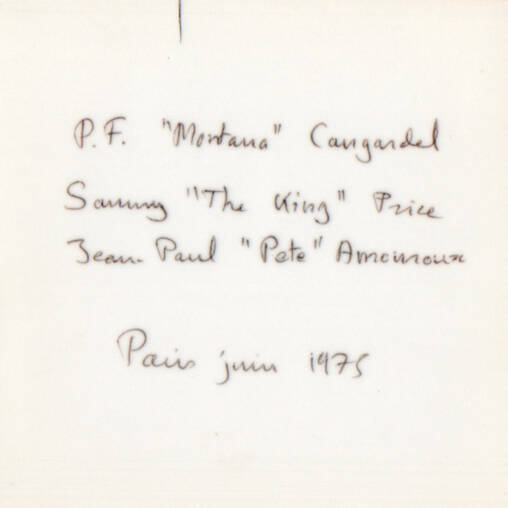 P.F. "Montana" Cangardel
Sammy "The King" Price
Jean-Paul "Pete" Amouroux
Paris juin 1975